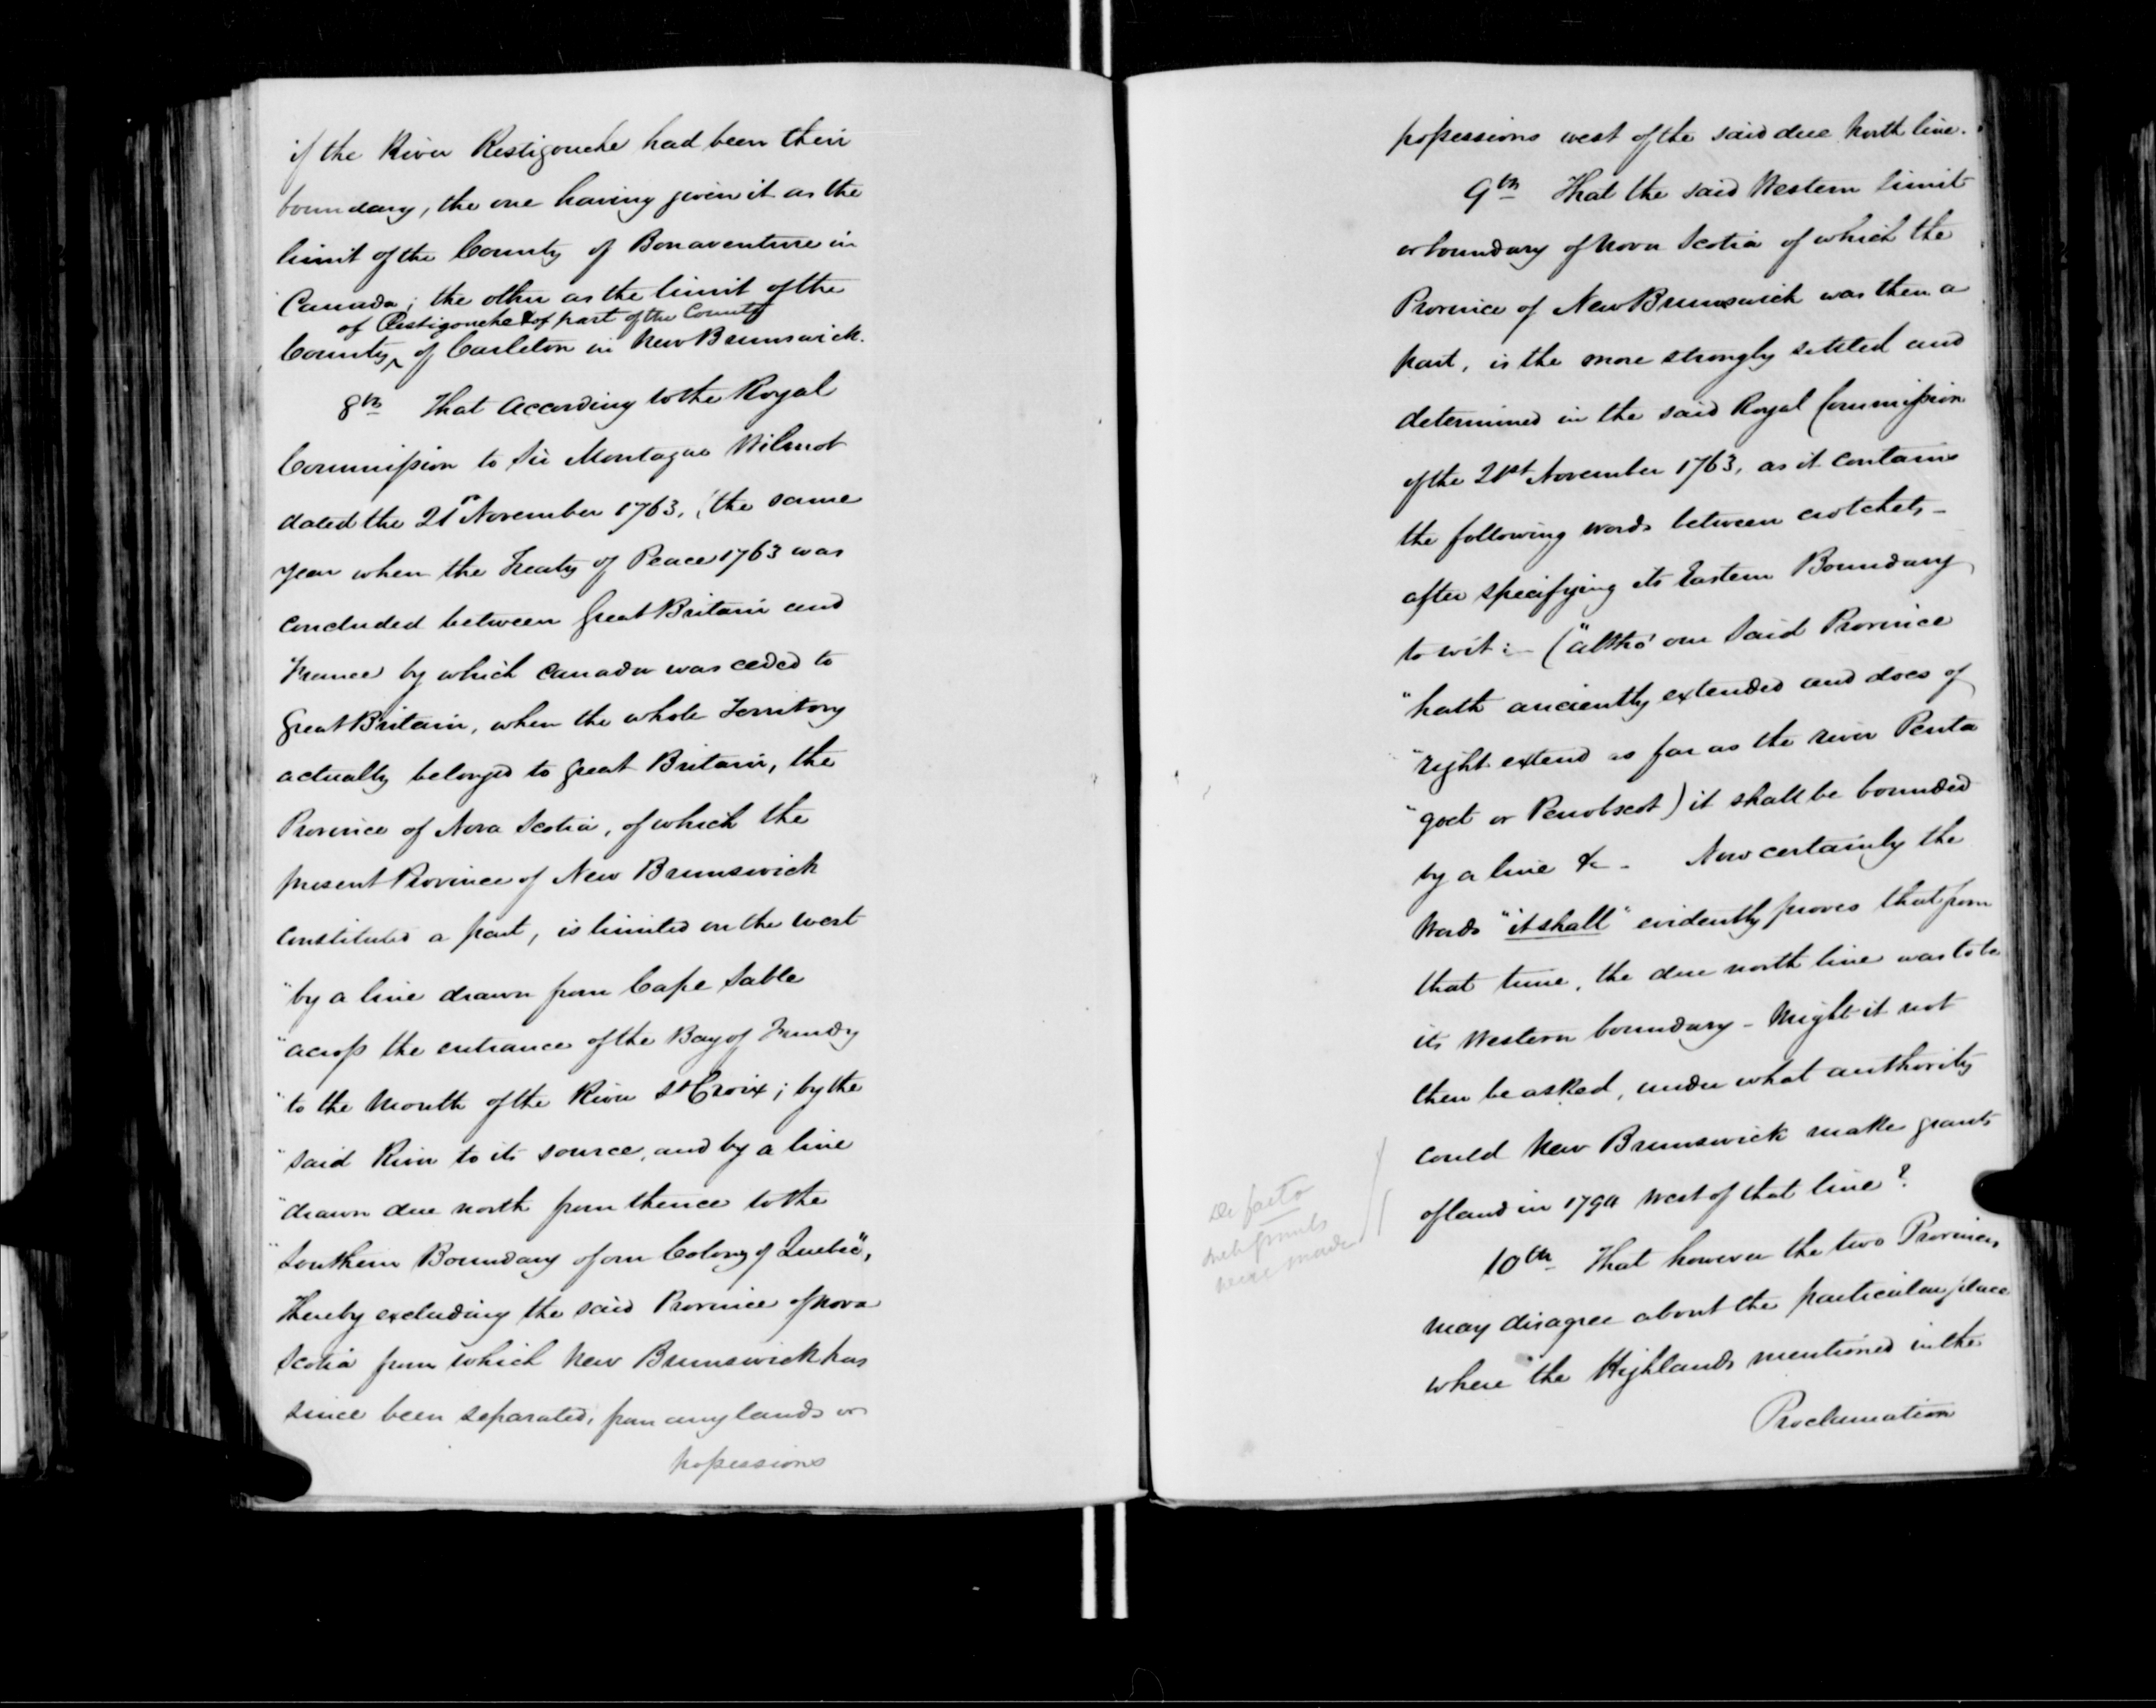 if the River Restigouche had been their
boundary, the one having given it as the
limit of the County of Bonaventure in
Canada; the other as the limit of the
of Restigouche & of part of the County
County, of Carleton in New Brunswick.
8th That According to the Royal
Commission to Sir Montague Wilmot
dated the 21st November 1763, (the same
year when the Treaty of Peace 1763 was
concluded between Great Britain and
France by which Canada was ceded to
Great Britain, when the whole Territory
actually belonged to Great Britain, the
Province of Nova Scotia, of which the
present Province of New Brunswick
constituted a part, is limited on the west
"by a line drawn from Cape Sable
"across the entrance of the Bay of Fundy
"to the mouth of the River St Croix; by the
"said River to its source, and by a line
"drawn due north from thence to the
"Southern Boundary of our Colony of Quebec",
thereby excluding the said Province of Nova
Scotia from which New Brunswick has
since been separated, from any lands or
possessions
possessions west of the said due North line.
9th That the said Western limit
or boundary of Nova Scotia of which the
Province of New Brunswick was then a
part, is the more strongly settled and
determined in the said Royal Commission
of the 21st November 1763, as it contains
the following words between crotchets -
after specifying its Eastern Boundary
to wit :- ("altho' our Said Province
"hath anciently extended and does of
"right extend as far as the river Penta
"goet or Penobscot) it shall be bounded
by a line &c - Now certainly the
Words "it shall" evidently proves that from
that time, the due north line was to be
its Western boundary - Might it not
then be asked, under what authority
could New Brunswick make grants
of land in 1790 West of that line?
De facto
such grants
were made
10th That however the two Provinces
may disagree about the particular place
where "the Highlands mentioned in the
Proclamation